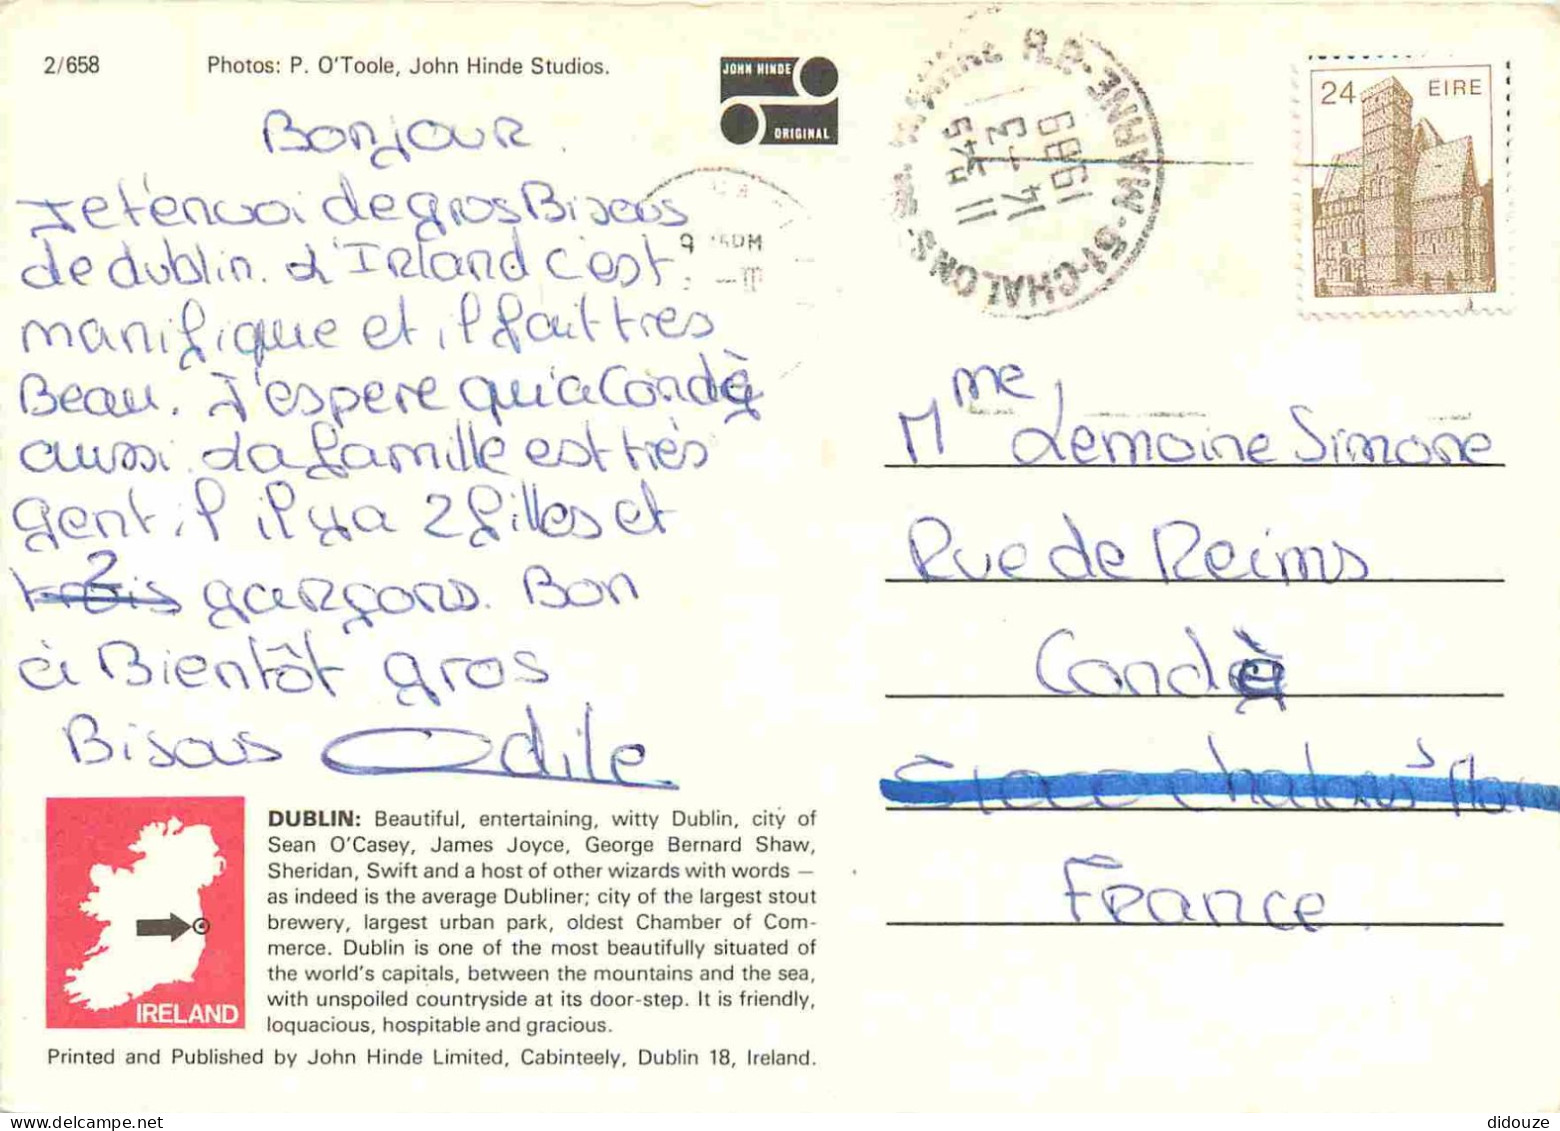 2/658
Photos: P. O'Toole, John Hinde Studios.
JOHN HINDE
ORIGINAL
Bonjour.
Je t'envoi de gros Bisous
de dublin. d'Irland c'est
manifique et il fait tres
Beau. J'espere qu'a Condè
aussi. La famille est très
gentil il y a 2 filles et
2
trois garçons. Bon
à Bientôt gros
Bisous Odile
DUBLIN: Beautiful, entertaining, witty Dublin, city of
Sean O'Casey, James Joyce, George Bernard Shaw,
Sheridan, Swift and a host of other wizards with words —
as indeed is the average Dubliner; city of the largest stout
brewery, largest urban park, oldest Chamber of Com-
merce. Dublin is one of the most beautifully situated of
the world's capitals, between the mountains and the sea,
with unspoiled countryside at its door-step. It is friendly,
loquacious, hospitable and gracious.
IRELAND
Printed and Published by John Hinde Limited, Cabinteely, Dublin 18, Ireland.
R.P. MARNE 51-CHALONS-
11 H45
14 - 3
1989
24 EIRE
Mme Lemoine Simone
Rue de Reims
Condè
France.
didouze